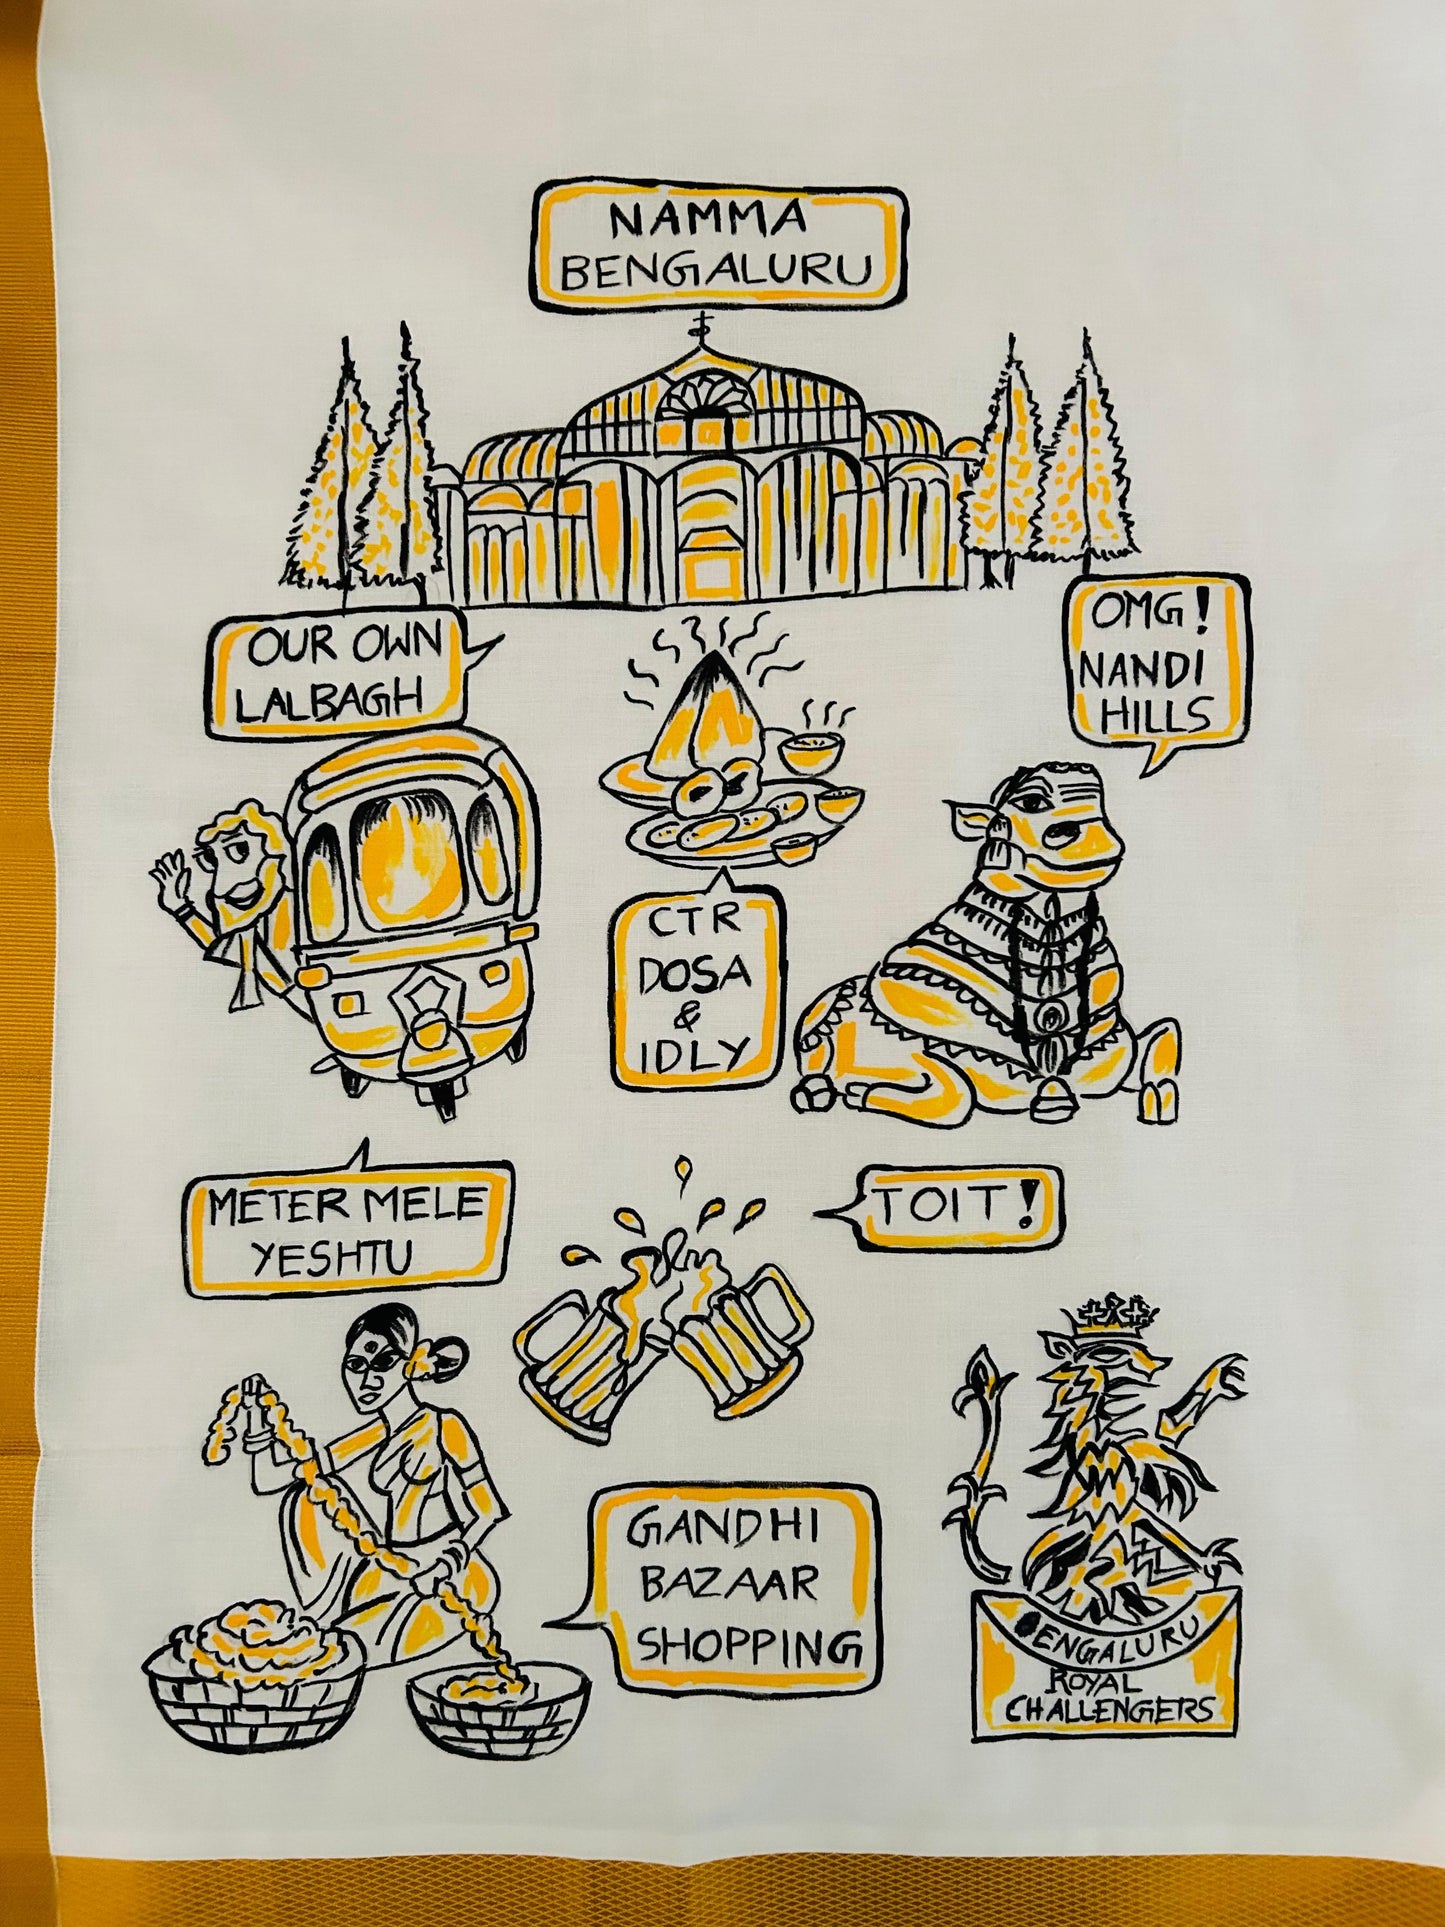 NAMMA
BENGALURU
OUR OWN
LALBAGH
OMG!
NANDI
HILLS
CTR
DOSA
&
IDLY
METER MELE
YESHTU
TOIT!
GANDHI
BAZAAR
SHOPPING
BENGALURU
ROYAL
CHALLENGERS